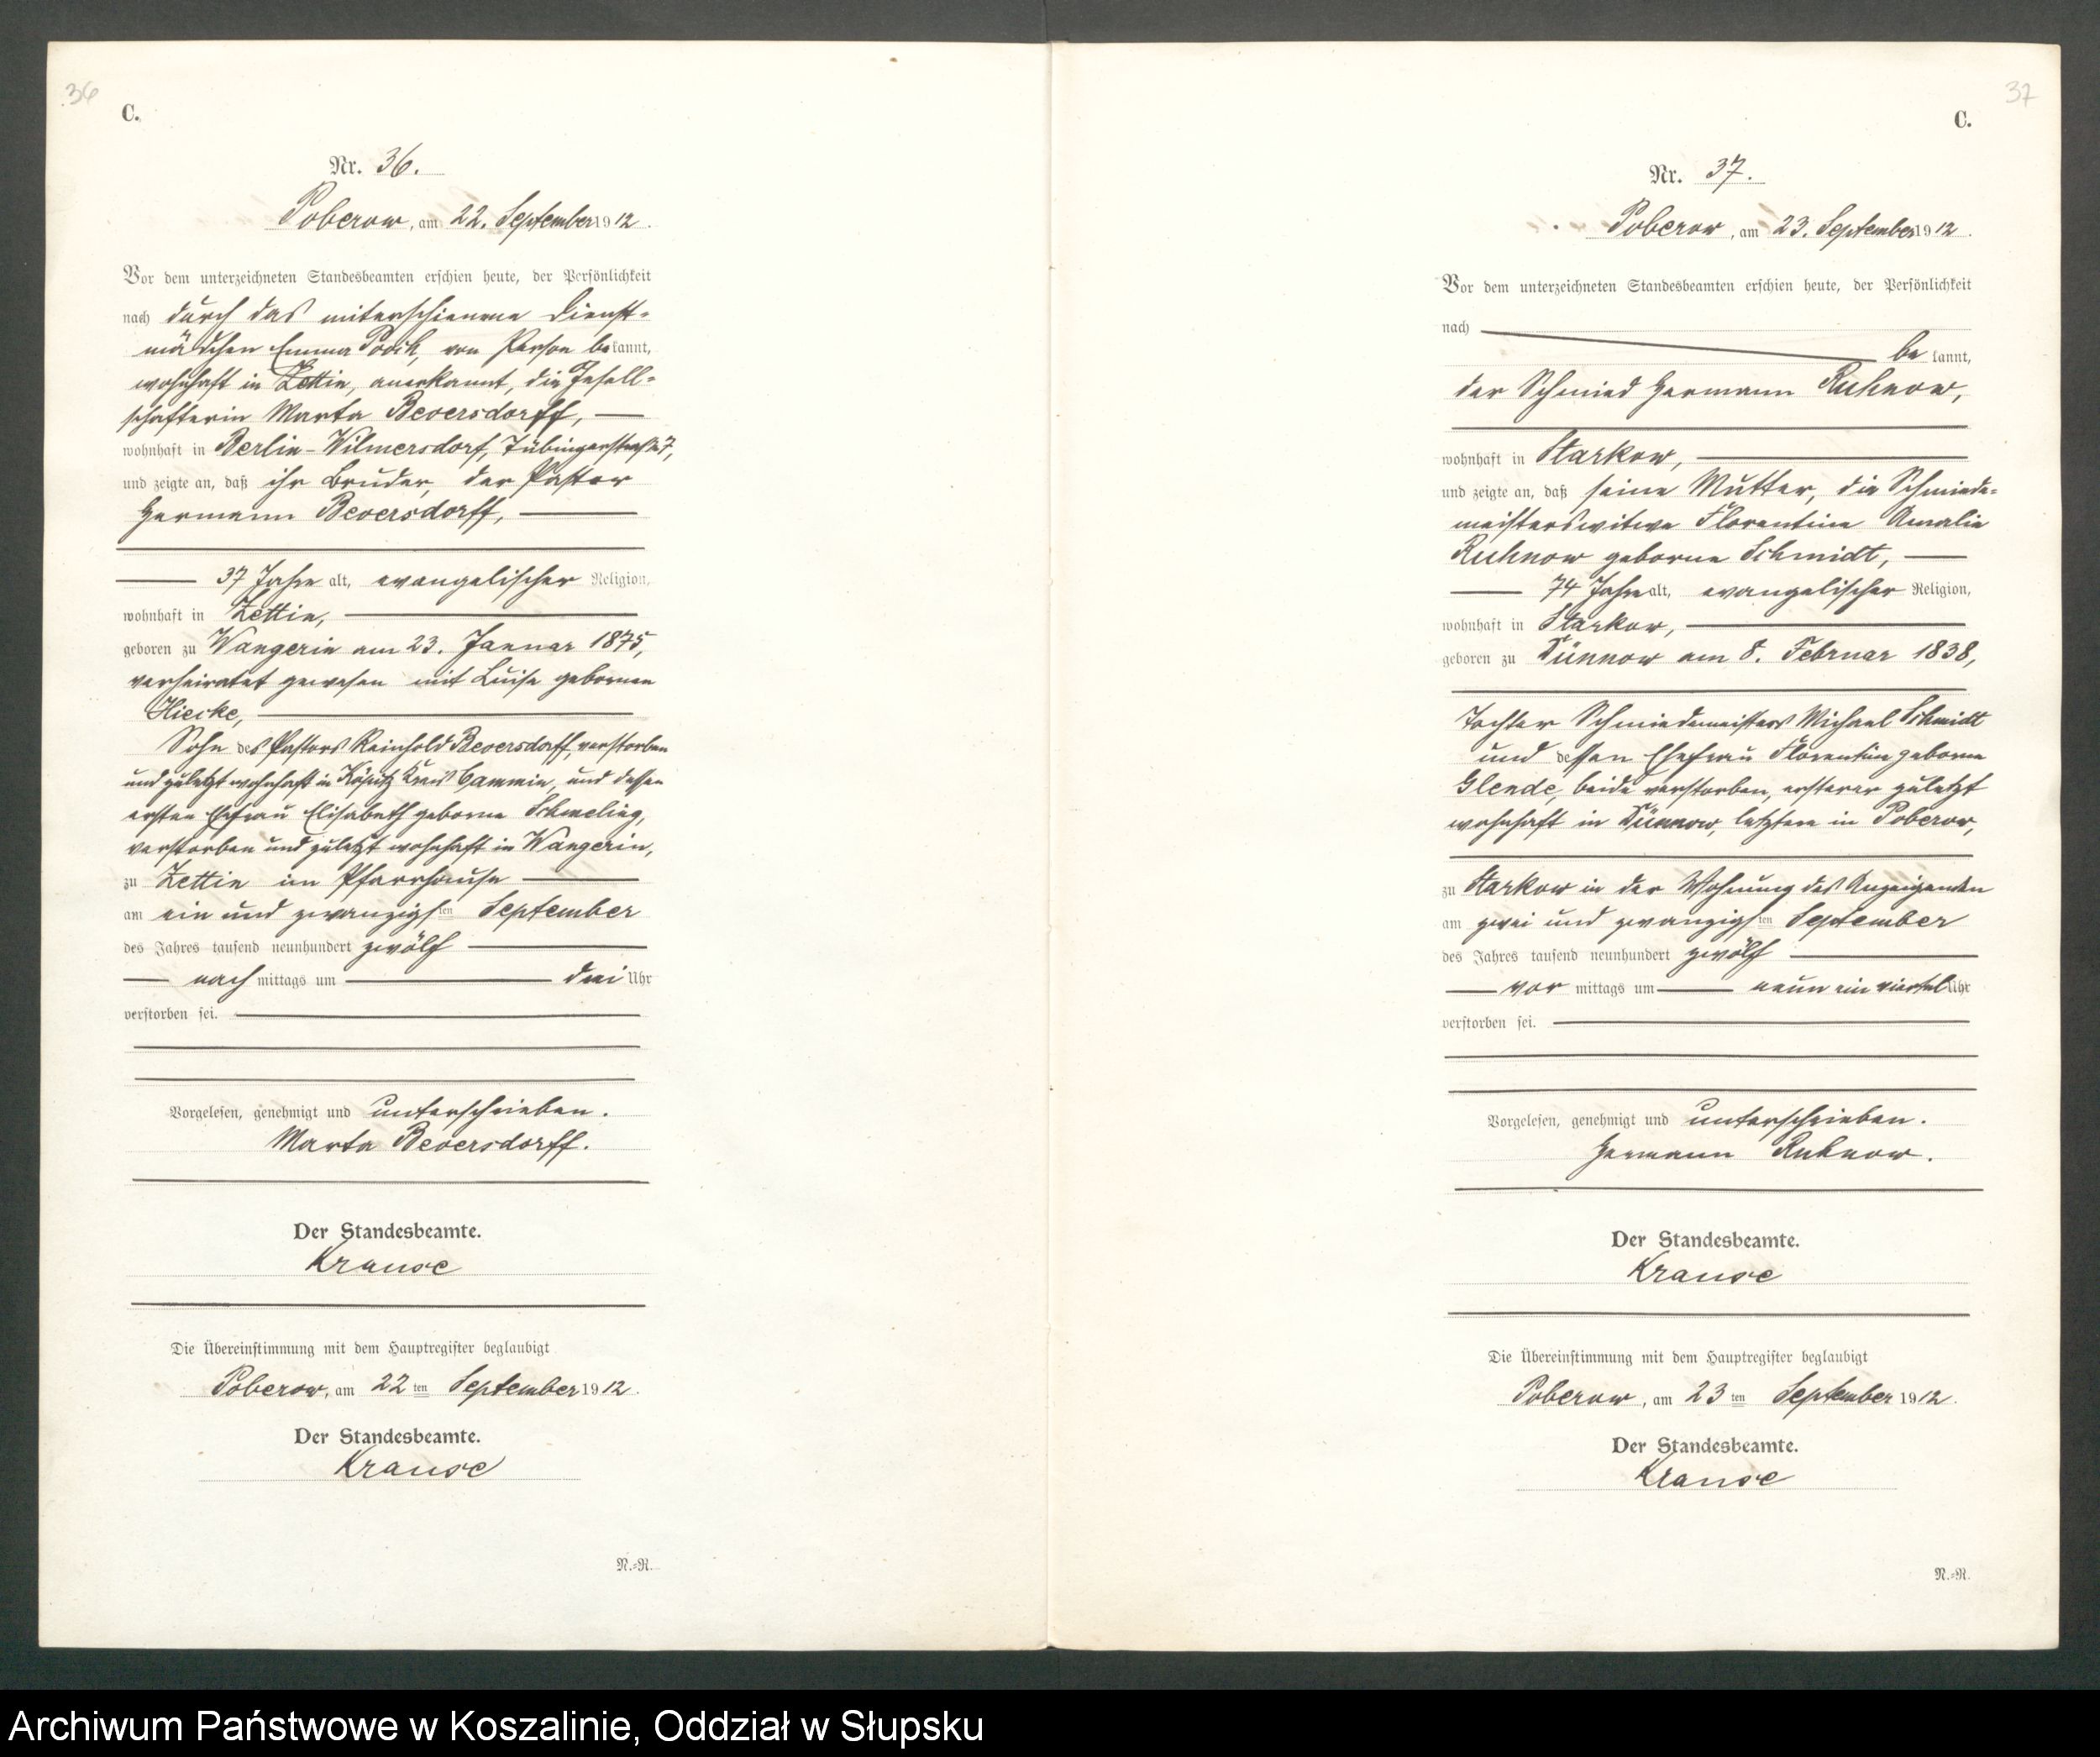 36
C.
Nr. 36.
Poberow, am 22. September 1912.
Vor dem unterzeichneten Standesbeamten erschien heute, der Persönlichkeit
nach durch das miterschienene Dienst-
mädchen Emma Poock, von Person bekannt,
wohnhaft in Zettin, anerkannt, die Gesell-
schafterin Marta Beversdorff,
wohnhaft in Berlin-Wilmersdorf, Tübingerstraße 7,
und zeigte an, daß ihr Bruder, der Pastor
Hermann Beversdorff,
37 Jahre alt, evangelischer Religion,
wohnhaft in Zettin,
geboren zu Wangerin am 23. Januar 1875,
verheiratet gewesen mit Luise gebornen
Hiecke,
Sohn des Pastors Reinhold Beversdorff, verstorben
und zuletzt wohnhaft in Köpitz Kreis Cammin, und dessen
ersten Ehefrau Elisabeth geborne Schmeling,
verstorben und zuletzt wohnhaft in Wangerin,
zu Zettin im Pfarrhause
am ein und zwanzigsten September
des Jahres tausend neunhundert zwölf
nach mittags um drei Uhr
verstorben sei.
Vorgelesen, genehmigt und unterschrieben.
Marta Beversdorff.
Der Standesbeamte.
Krause
Die Übereinstimmung mit dem Hauptregister beglaubigt
Poberow, am 22ten September 1912.
Der Standesbeamte.
Krause
N.-R.
37
C.
Nr. 37.
Poberow, am 23. September 1912.
Vor dem unterzeichneten Standesbeamten erschien heute, der Persönlichkeit
nach
bekannt,
der Schmied Hermann Ruhnow,
wohnhaft in Starkow,
und zeigte an, daß seine Mutter, die Schmiede-
meisterswitwe Florentine Amalie
Ruhnow geborne Schmidt,
74 Jahre alt, evangelischer Religion,
wohnhaft in Starkow,
geboren zu Dünnow am 8. Februar 1838,
Tochter Schmiedemeisters Michael Schmidt
und dessen Ehefrau Florentine geborne
Glende, beide verstorben, ersterer zuletzt
wohnhaft in Dünnow, letztere in Poberow,
zu Starkow in der Wohnung des Anzeigenden
am zwei und zwanzigsten September
des Jahres tausend neunhundert zwölf
vor mittags um neun ein viertel Uhr
verstorben sei.
Vorgelesen, genehmigt und unterschrieben.
Hermann Ruhnow.
Der Standesbeamte.
Krause
Die Übereinstimmung mit dem Hauptregister beglaubigt
Poberow, am 23ten September 1912.
Der Standesbeamte.
Krause
N.-R.
Archiwum Państwowe w Koszalinie, Oddział w Słupsku